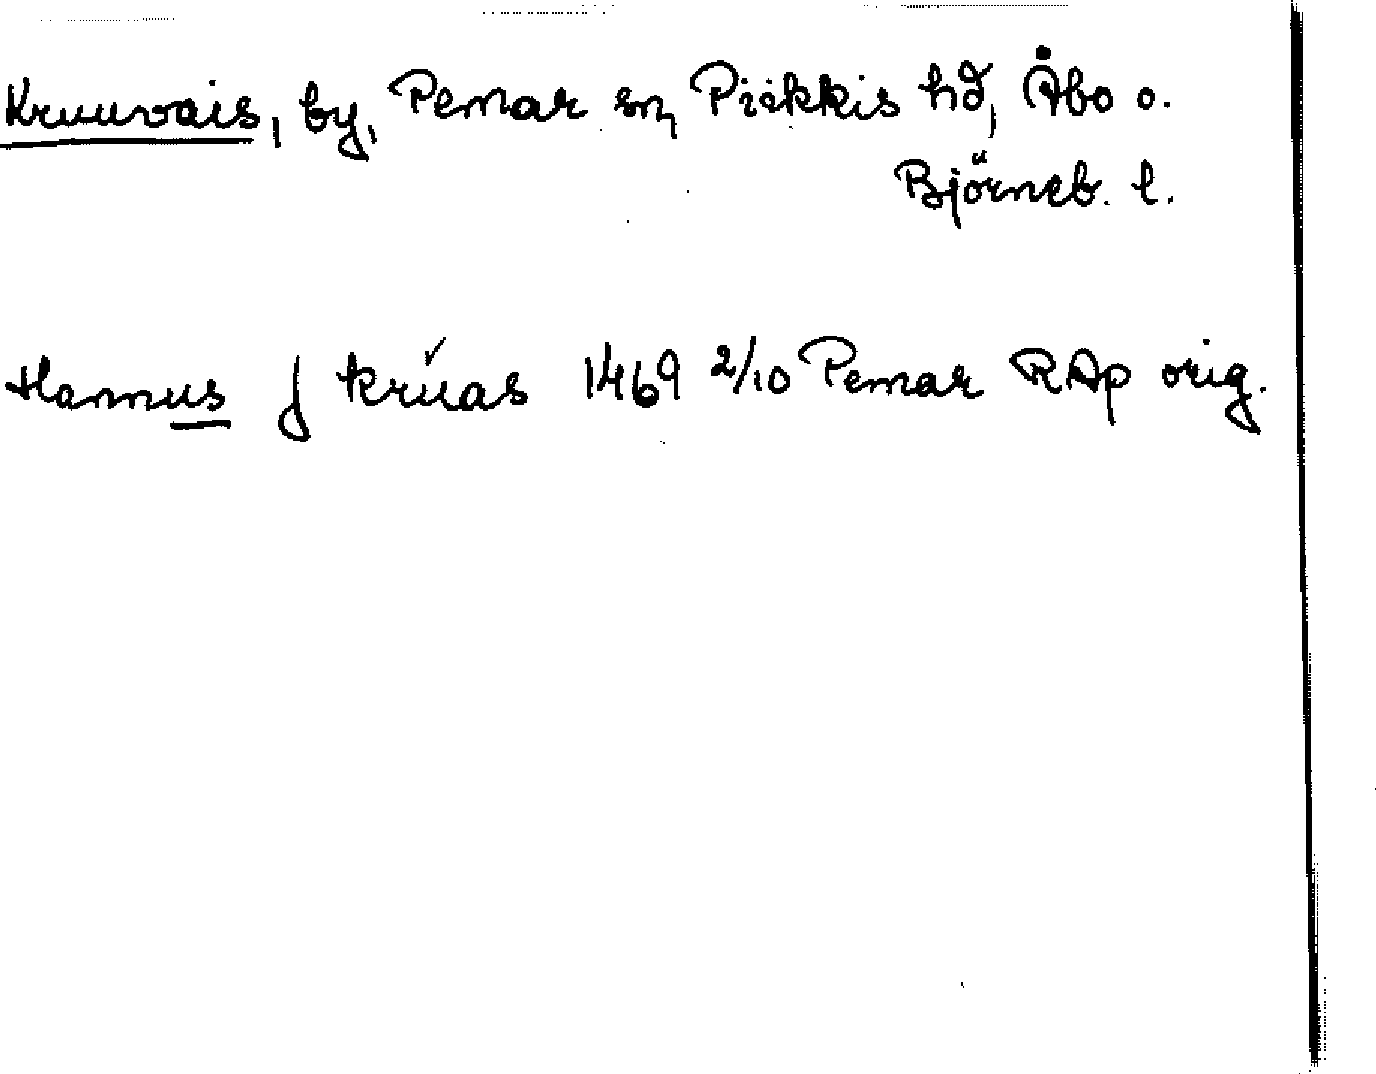 Kruuvais, by, Pemar sn, Piikkis hd, Åbo o.
Björneb. l.
Hannus j krúas 1469 2/10 Pemar RAp orig.